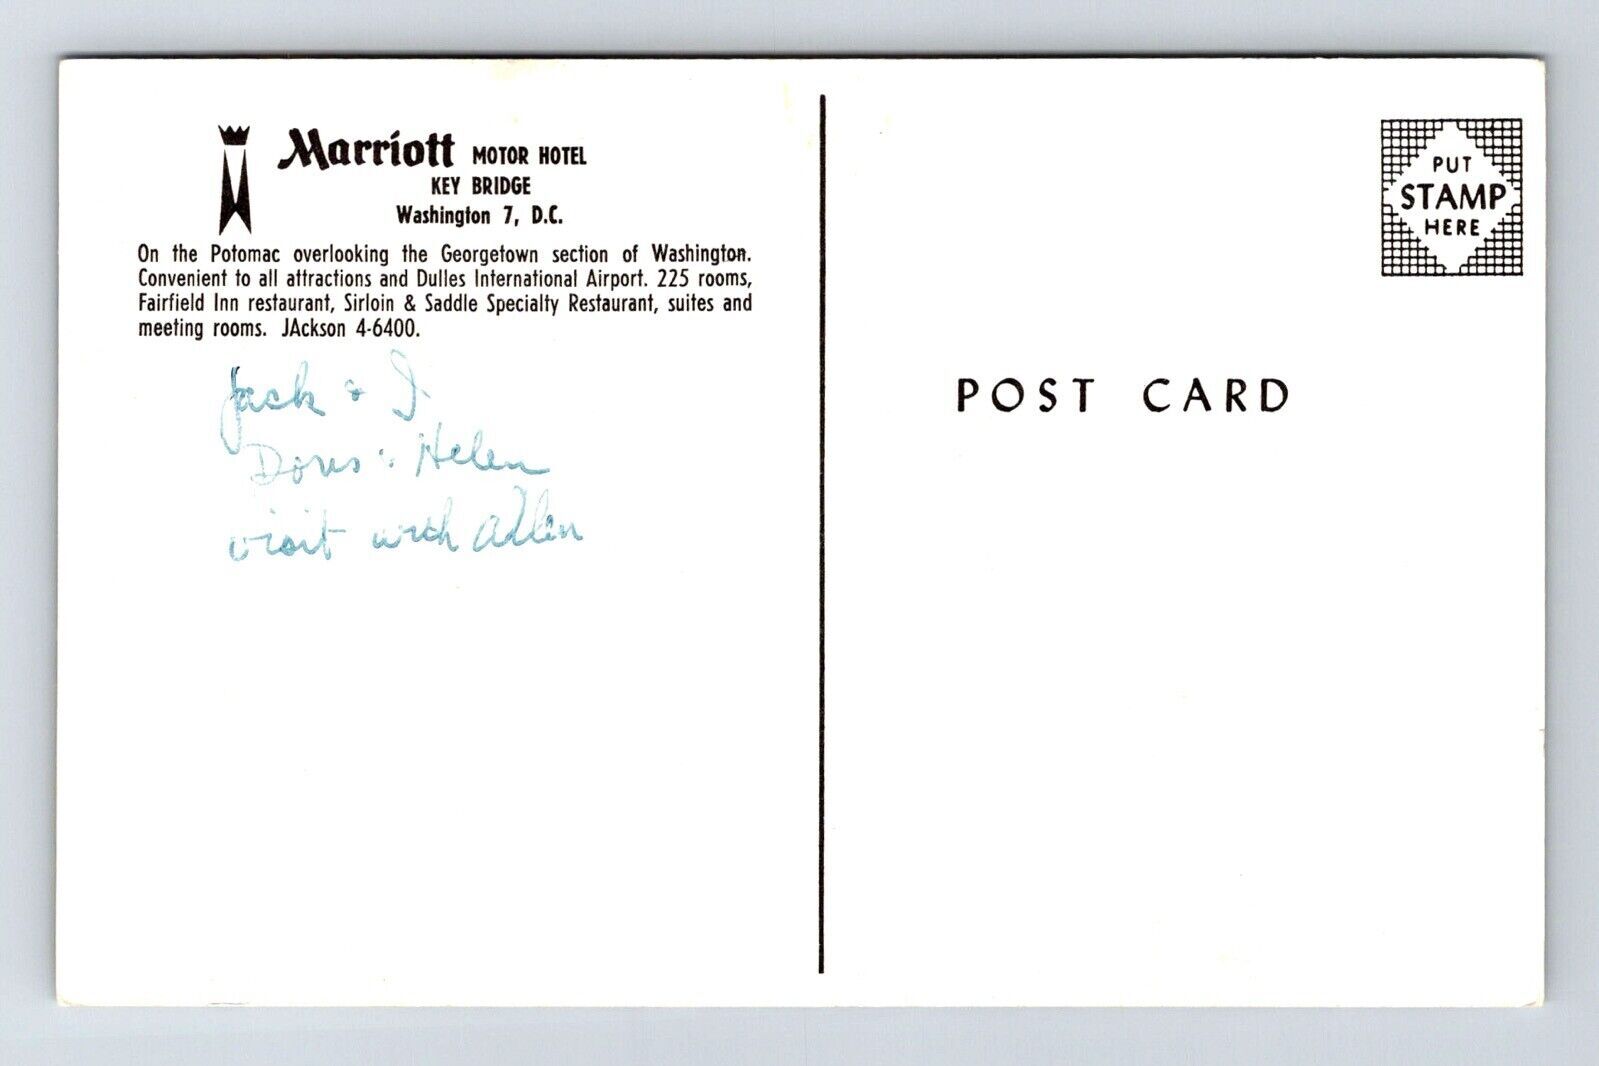 Marriott MOTOR HOTEL
KEY BRIDGE
Washington 7, D.C.
On the Potomac overlooking the Georgetown section of Washington.
Convenient to all attractions and Dulles International Airport. 225 rooms,
Fairfield Inn restaurant, Sirloin & Saddle Specialty Restaurant, suites and
meeting rooms. JAckson 4-6400.
Jack & I
Doris & Helen
visit with Allen
PUT
STAMP
HERE
POST CARD